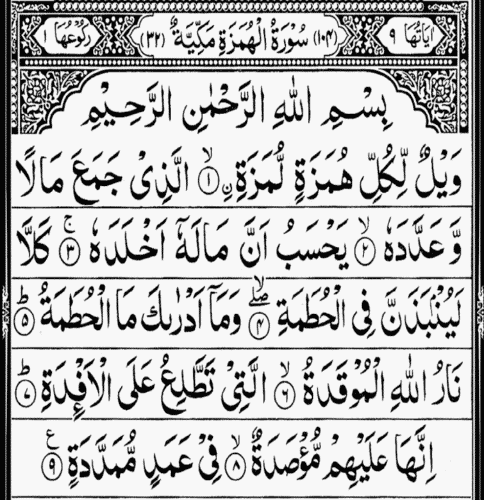 اٰیَاتُهَا ٩ (١٠٤) سُوْرَةُ الْهُمَزَةِ مَكِّیَّةٌ (٣٢) رُكُوْعُهَا ١
بِسْمِ اللّٰهِ الرَّحْمٰنِ الرَّحِیْمِ
وَیْلٌ لِّكُلِّ هُمَزَةٍ لُّمَزَةِ ﹰ ۙ﴿١﴾ الَّذِیْ جَمَعَ مَالًا
وَّ عَدَّدَهٗ ۙ﴿٢﴾ یَحْسَبُ اَنَّ مَالَهٗۤ اَخْلَدَهٗ ۚ﴿٣﴾ كَلَّا
لَیُنْۢبَذَنَّ فِی الْحُطَمَةِ ۖۙ﴿٤﴾ وَمَاۤ اَدْرٰىكَ مَا الْحُطَمَةُ ؕ﴿٥﴾
نَارُ اللّٰهِ الْمُوْقَدَةُ ۙ﴿٦﴾ الَّتِیْ تَطَّلِعُ عَلَی الْاَفْـِٕدَةِ ؕ﴿٧﴾
اِنَّهَا عَلَیْهِمْ مُّؤْصَدَةٌ ۙ﴿٨﴾ فِیْ عَمَدٍ مُّمَدَّدَةٍ ﴿٩﴾ ع